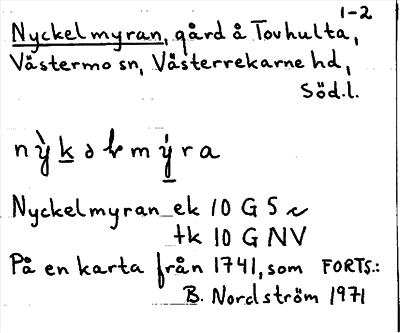 1-2
Nyckelmyran, gård å Tovhulta,
Västermo sn, Västerrekarne hd,
Söd.l.
nỳk̲əɫmý̲ra
Nyckelmyran ek 10 G 5
tk 10 G NV
På en karta från 1741, som FORTS.:
B. Nordström 1971